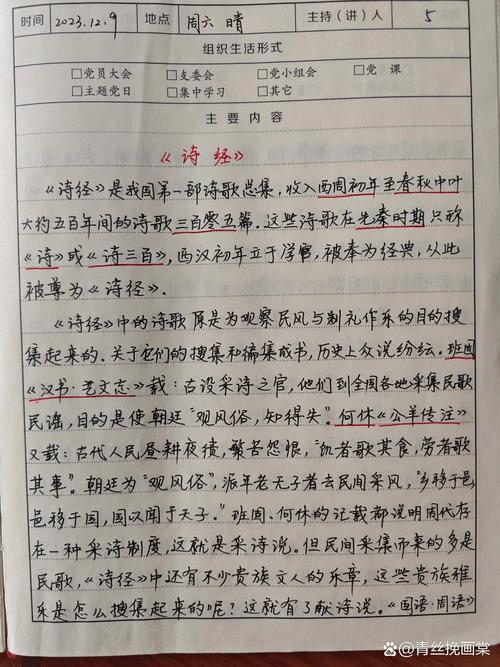 时间 2023.12.9 地点 周六 晴 主持（讲）人 5
组织生活形式
□党员大会 □支委会 □党小组会 □党 课
□主题党日 □集中学习 □其它
主 要 内 容
《诗经》
《诗经》是我国第一部诗歌总集，收入西周初年至春秋中叶
大约五百年间的诗歌三百零五篇．这些诗歌在先秦时期只称
《诗》或《诗三百》，西汉初年立于学官，被奉为经典，从此
被尊为《诗经》．
《诗经》中的诗歌原是为观察民风与制礼作乐的目的搜
集起来的．关于它们的搜集和编集成书，历史上众说纷纭．班固
《汉书·艺文志》载：古设采诗之官，他们到全国各地采集民歌
民谣，目的是使朝廷“观风俗，知得失”．何休《公羊传注》
又载：古代人民昼耕夜绩，繁苦怨恨，“饥者歌其食，劳者歌
其事”．朝廷为“观风俗”，派年老无子者去民间采风，“乡移于邑，
邑移于国，国以闻于天子．”班固．何休的记载都说明周代存
在一种采诗制度，这就是采诗说．但民间采集而来的多是
民歌，《诗经》中还有不少贵族文人的乐章，这些贵族雅
乐是怎么搜集起来的呢？这就有了献诗说．《国语·周语》
青丝挽画堂